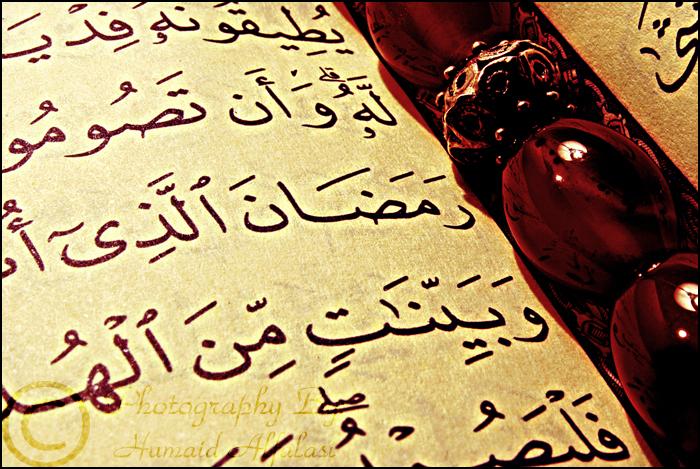 يُطِيقُونَهُۥ فِدْيَ
لَّهُۥ ۚ وَأَن تَصُومُو
رَمَضَانَ ٱلَّذِىٓ أُ
وَبَيِّنَٰتٍ مِّنَ ٱلْهُد
فَلْيَصُمْهُ ۖ
Photography By
Humaid Alfalasi